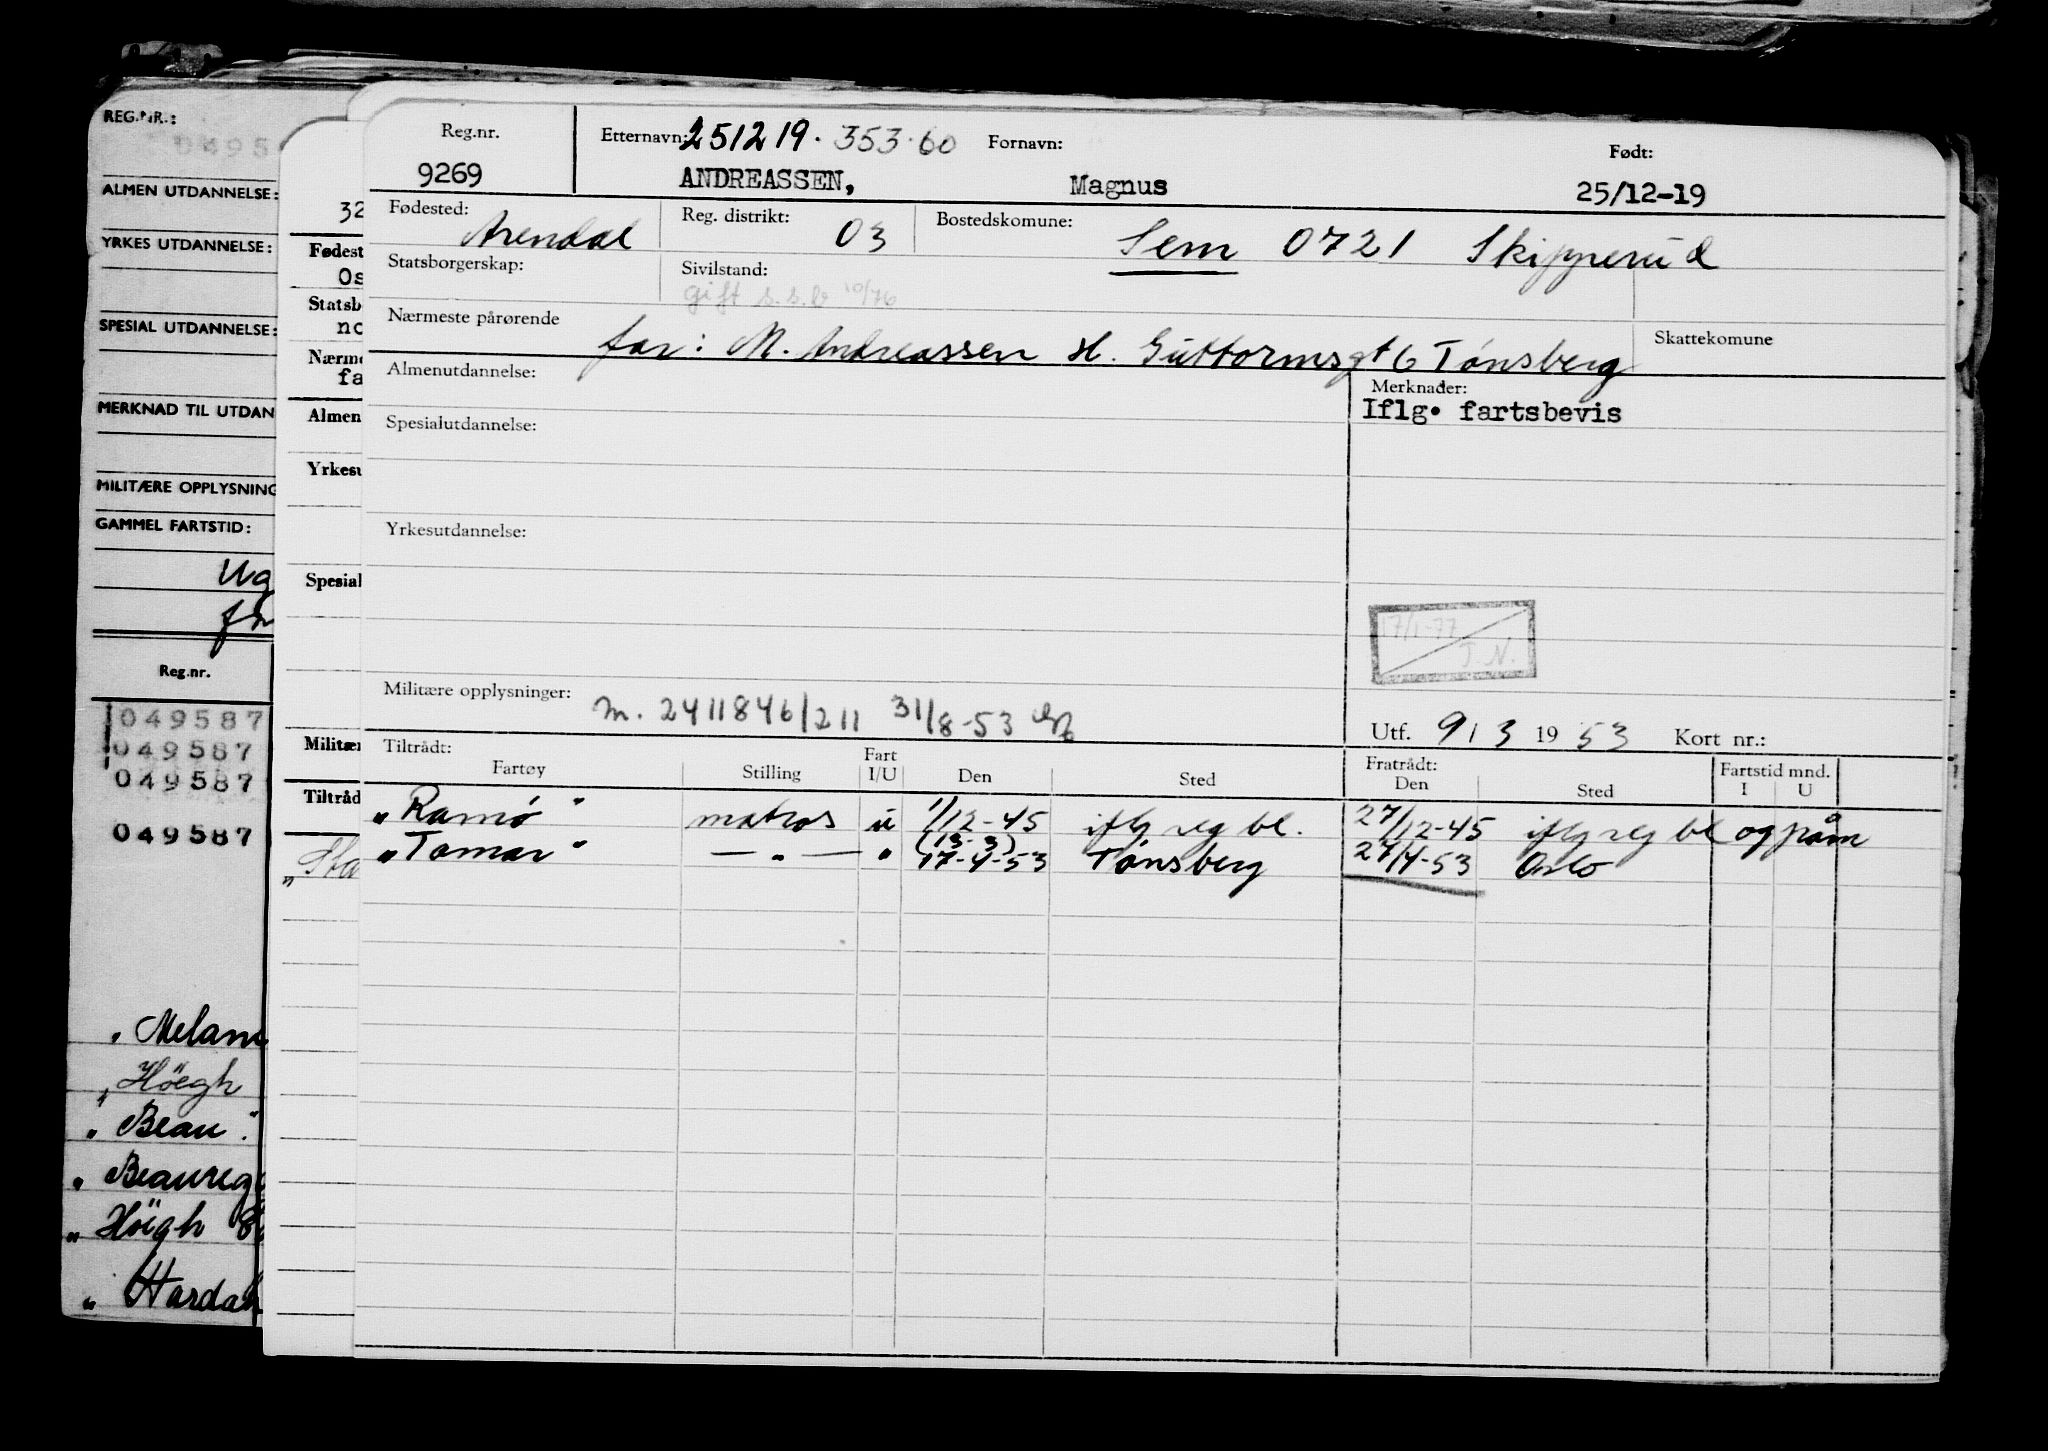 REG.NR.:
0495
ALMEN UTDANNELSE:
YRKES UTDANNELSE:
SPESIAL UTDANNELSE:
MERKNAD TIL UTDAN
MILITÆRE OPPLYSNING
GAMMEL FARTSTID:
Reg.nr.
049587
049587
049587
049587
„Melan
„Höegh
„Beau"
„Beaureg
„Höegh
„Harda
32
Fødest
Os
Statsb
no
Nærme
fa
Almen
Yrkesu
Spesial
Militær
Tiltråd
Reg.nr. Etternavn: 251219. 353.60 Fornavn: Født:
9269 ANDREASSEN, Magnus 25/12-19
Fødested: Arendal Reg. distrikt: 03 Bostedskommune: Sem 0721 Skipperud
Statsborgerskap: Sivilstand:
gift s.s.b 10/76
Nærmeste pårørende far: M. Andreassen H. Guttormsgt 6 Tønsberg Skattekomune
Almenutdannelse: Merknader:
Iflg. fartsbevis
Spesialutdannelse:
Yrkesutdannelse:
17/1-77
J.N.
Militære opplysninger: M. 2411846/211 31/8-53
Utf. 9/3 1953 Kort nr.:
Tiltrådt: Fratrådt: Fartstid mnd.
Fartøy Stilling Fart I/U Den Sted Den Sted I U
„Ramö" matros u 1/12-45 iflg reg bl. 27/12-45 iflg reg bl og påm
(13-3)
„Tamar" — " — " 17-4-53 Tønsberg 27/4-53 Oslo